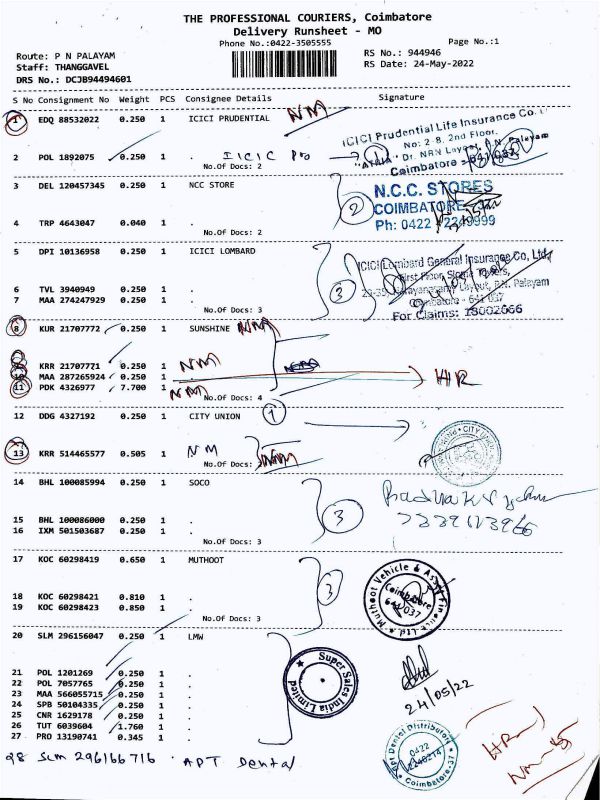 THE PROFESSIONAL COURIERS, Coimbatore
Delivery Runsheet - MO
Phone No.:0422-3505555
Page No.:1
Route: P N PALAYAM
RS No.: 944946
Staff: THANGGAVEL
RS Date: 24-May-2022
DRS No.: DCJB94494601
S No Consignment No Weight PCS Consignee Details Signature
1 EDQ 88532022 0.250 1 ICICI PRUDENTIAL NM
ICICI Prudential Life Insurance Co.
No: 2-8, 2nd Floor,
2 POL 1892075 0.250 1 .
Coimbatore
No.Of Docs: 2
3 DEL 120457345 0.250 1 NCC STORE
N.C.C. STORES
2
COIMBATORE
4 TRP 4643047 0.040 1 .
Ph: 0422
No.Of Docs: 2
5 DPI 10136958 0.250 1 ICICI LOMBARD
ICICI Lombard General Insurance Co, Ltd
6 TVL 3940949 0.250 1 .
3
7 MAA 274247929 0.250 1 .
Coimbatore - 641 037
No.Of Docs: 3
For Claims: 18002666
8 KUR 21707772 0.250 1 SUNSHINE NM
9 KRR 21707771 0.250 1 . NM
10 MAA 287265924 0.250 1 .
HR
11 PDK 4326977 7.700 1 . NM
No.Of Docs: 4
12 DDG 4327192 0.250 1 CITY UNION 1
13 KRR 514465577 0.505 1 NM
No.Of Docs: NM
14 BHL 100085994 0.250 1 SOCO
3
15 BHL 100086000 0.250 1 .
16 IXM 501503687 0.250 1 .
No.Of Docs: 3
17 KOC 60298419 0.650 1 MUTHOOT
3
Muthoot Vehicle & Asset Finance Ltd.
Coimbatore
641 037
18 KOC 60298421 0.810 1 .
19 KOC 60298423 0.850 1 .
No.Of Docs: 3
20 SLM 296156047 0.250 1 LMW
Super Sales India Limited
21 POL 1201269 0.250 1 .
22 POL 7057765 0.250 1 .
23 MAA 566055715 0.250 1 .
24 SPB 50104335 0.250 1 .
24/05/22
25 CNR 1629178 0.250 1 .
26 TUT 6039604 1.760 1 .
27 PRO 13190741 0.345 1 .
Apt Dental Distributors
0422
Coimbatore-37
HR
28 SLM 296166716 . APT Dental